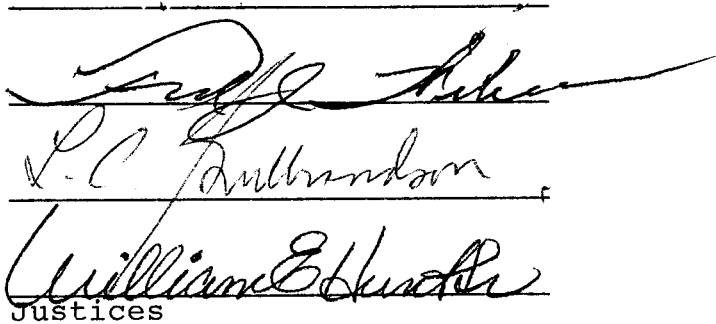 L. C. Gulbrandson
William E Hunter
Justices